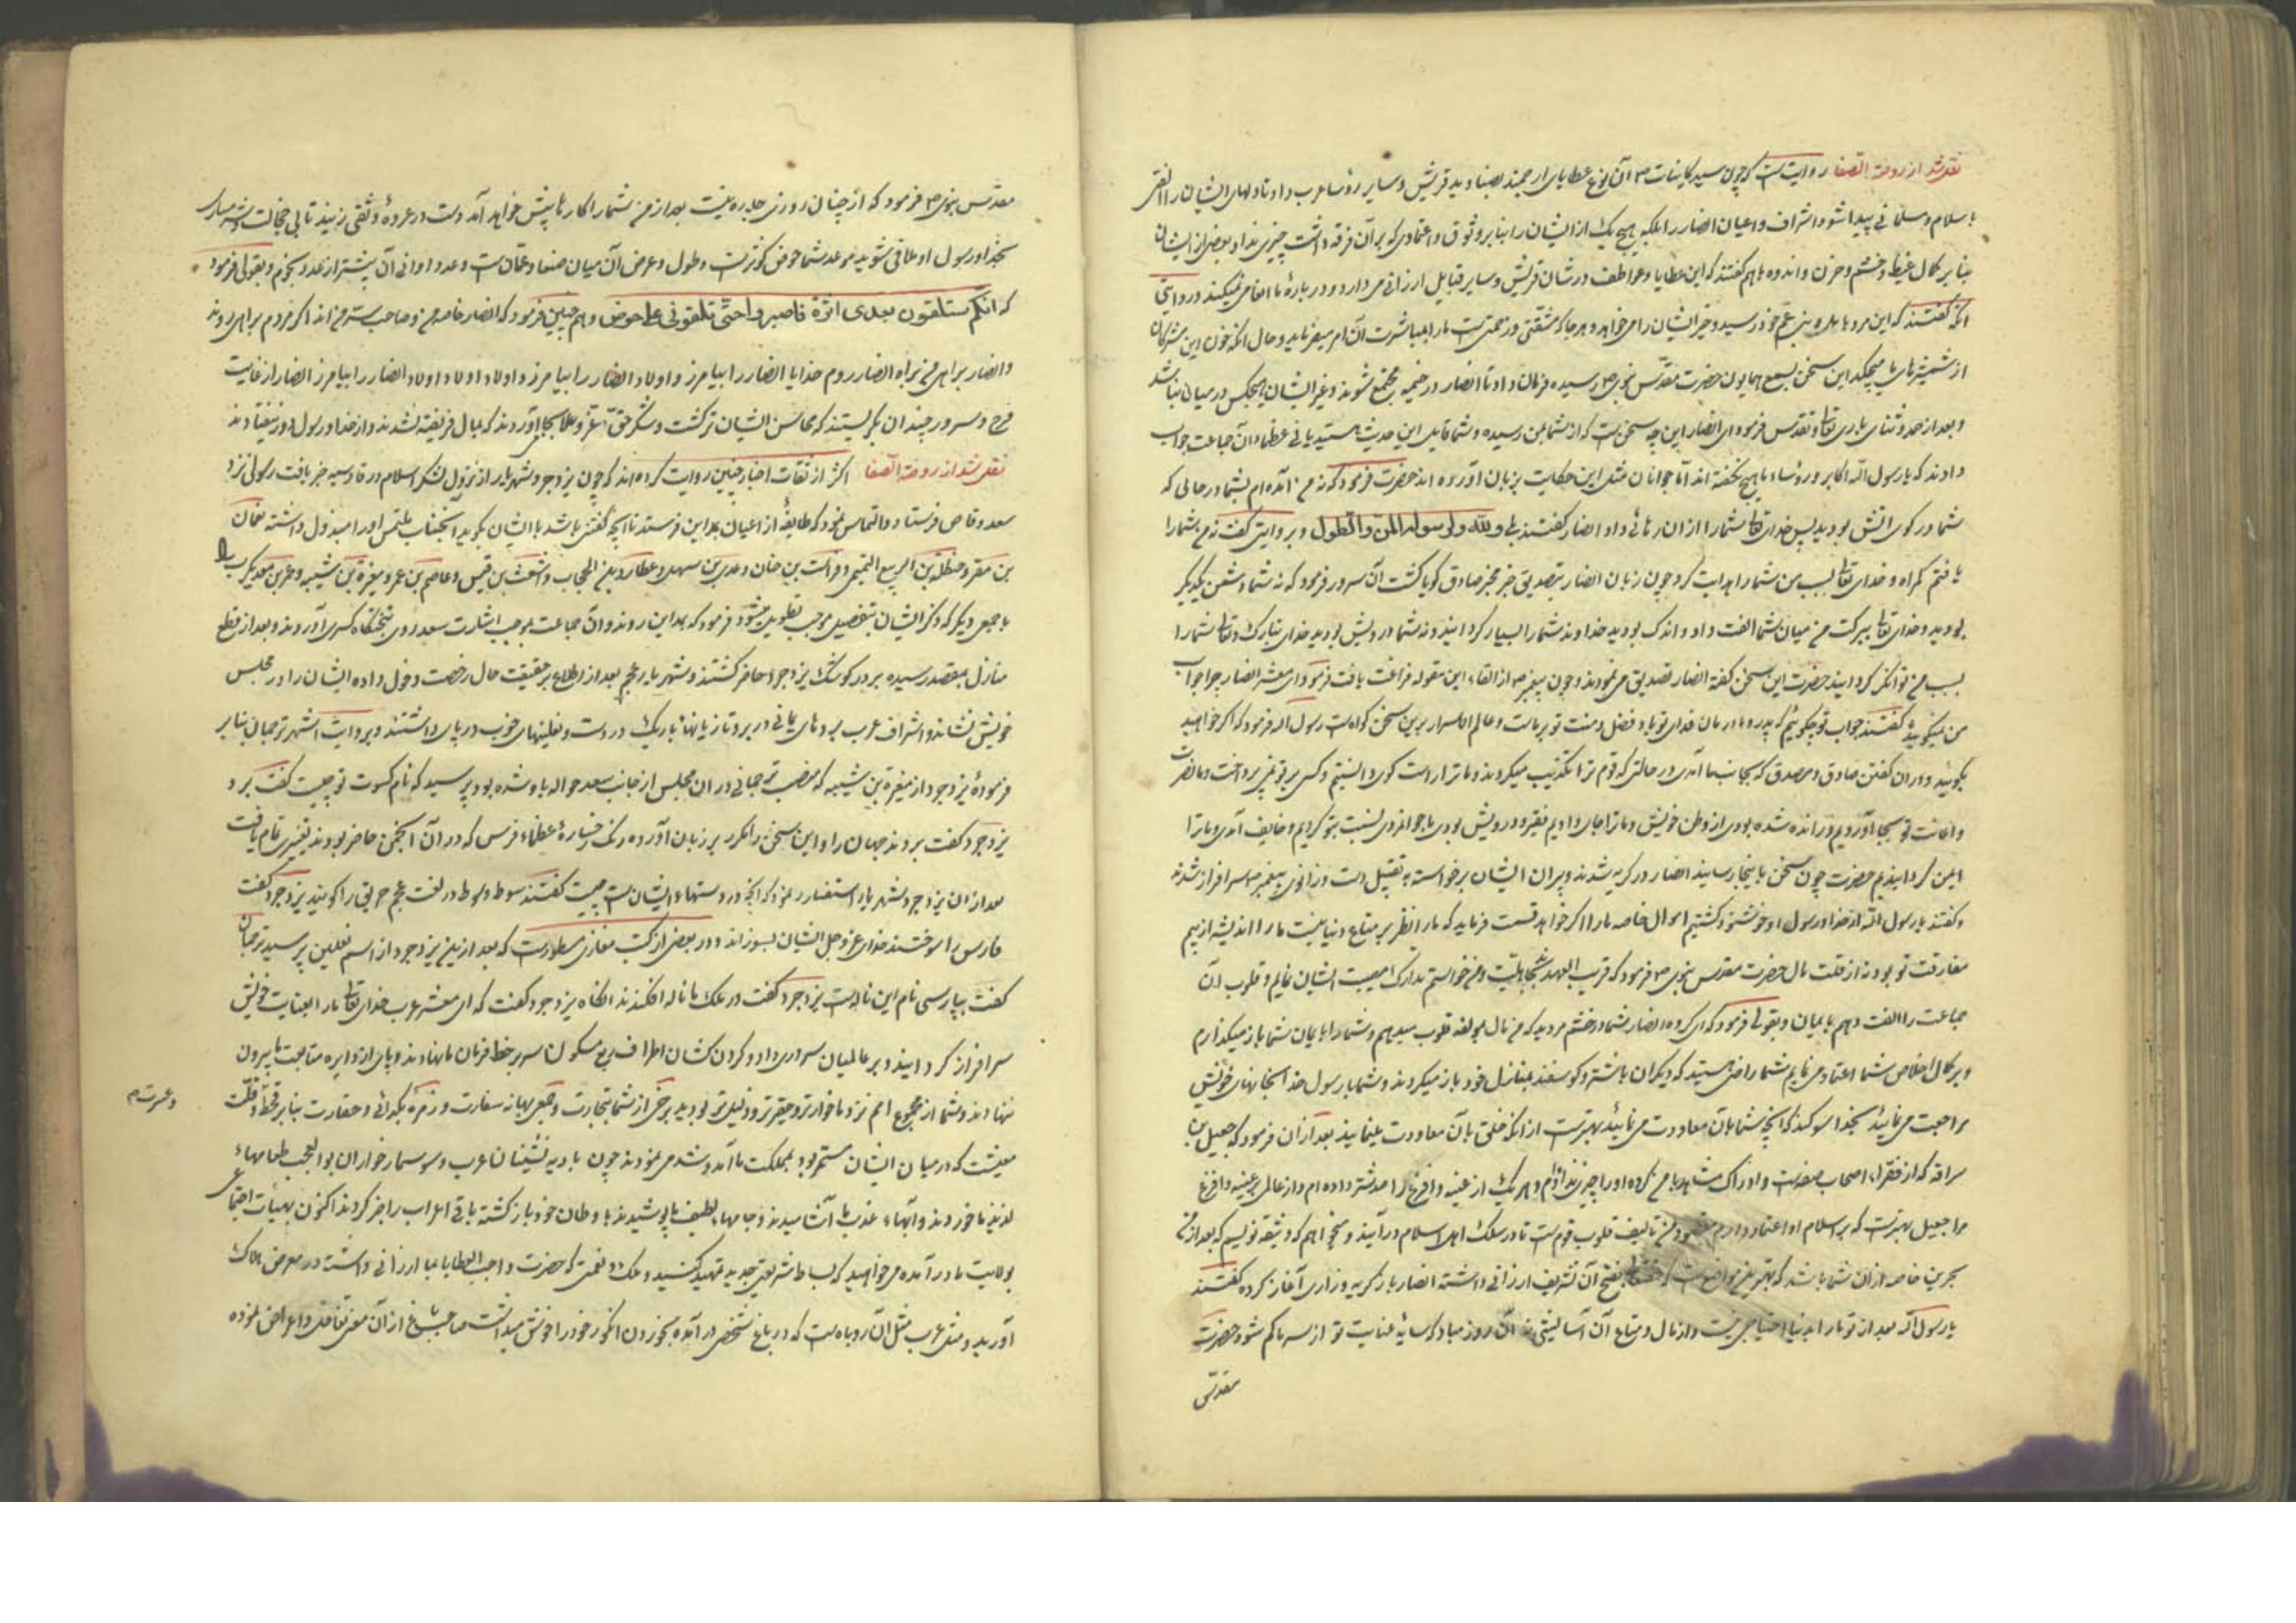 نقل شد از روضة الصفا روایت است که چون سید کاینات ص آن نوع عطایای ارجمند بصنادید قریش و سایر رؤساء عرب داد تا دلهای ایشان را الفتی
باسلام و مسلمانی پیدا شود اشراف و اعیان انصار را بلکه هیچ یک از ایشان را بنابر وثوق و اعتمادی که بر آن فرقه داشت چیزی نداد بعضی از ایشان
بنابر کمال غیظ و خشم و حزن و اندوه باهم گفتند که این عطایا و عواطف در شان قریش و سایر قبایل ارزانی می دارد و در باره ما انعامی نمیکند و در روایتی
آنکه گفتند که این مرد باهل و بنی عم خود رسید و خیر ایشان را می خواهد و هر جا که مشقتی و زحمتی است ما را بمباشرت آن امر میفرماید و حال آنکه خون این مشرکان
از شمشیرهای ما میچکد این سخن بسمع همایون حضرت مقدس نبوی ص رسیده فرمان داد تا انصار در خیمه مجتمع شوند و غیر ایشان هیچکس در میان نباشد
و بعد از حمد و ثنای باری تعالی و تقدس فرمود ای انصار این چه سخن است که از شما بمن رسیده و شما قایل این حدیث هستید یا نی عظماء آن جماعت جواب
دادند که یا رسول الله اکابر و رؤساء ما هیچ نگفته اند اما جوانان مثل این حکایت بر زبان آورده اند حضرت فرمود که نه من آمده ام بشما در حالی که
شما در کوی آتش بودید پس خدای تعالی شما را از آن رهائی داد انصار گفتند بلی و لله و لرسوله المن و الطول و بروایتی گفت نه من شما را
یافتم گمراه و خدای تعالی بسبب من شما را هدایت کرد چون زبان انصار بتصدیق خبر مخبر صادق گویا گشت آن سرور فرمود که نه شما دشمن یکدیگر
بودید و خدای تعالی ببرکت من میان شما الفت داد و اندک بودید خداوند شما را بسیار گردانید و نه شما درویش بودید خدای تبارک و تعالی شما را
بسبب من توانگر گردانید حضرت این سخن گفته انصار تصدیق می نمودند و چون پیغمبر ص از القاء این مقوله فراغت یافت فرمود ای معشر انصار چرا جواب
من نمیگویید گفتند جواب تو چگوئیم که پدر و مادر مان فدای تو باد فضل و منت تو بر ماست و عالم الاسرار برین سخن گواه است رسول الله فرمود که اگر خواهید
بگویید و در آن گفتن صادق و مصدق که بجانب ما آمدی در حالتی که قوم ترا تکذیب میکردند و ما ترا راست گوی دانستیم و کسی بر تو نمی پرداخت و ما نصرت
و اعانت تو بجا آوردیم و رانده شده بودی از وطن خویش و ما ترا جای دادیم فقیر و درویش بودی ما جوانمردی نسبت بتو کردیم و خایف آمدی و ما ترا
ایمن گردانیدیم حضرت چون سخن باینجا رسانید انصار در گریه شدند و پیران ایشان برخواسته به تقبیل دست و زانوی پیغمبر ص سرافراز شدند
و گفتند یا رسول الله از خدا و رسول او خوشنود گشتیم اموال خاصه ما را اگر خواهد قسمت فرماید که ما را نظر بر متاع دنیا نیست ما را اندیشه از بیم
مفارقت تو بود نه از قلت مال حضرت مقدس نبوی ص فرمود که قریب العهد بجاهلیت و من خواستم تدارک مصیبت ایشان نمایم و قلوب آن
جماعت را الفت دهم بایمان و بقولی فرمود که ای گروه انصار شما در خشم مردید که من مال بمولفه قلوب میدهم و شما را بایمان شما باز میگذارم
و بر کمال اخلاص شما اعتماد می نمایم شما راضی هستید که دیگران با شتر و گوسفند بمنازل خود باز میگردند و شما با رسول خدا بخانهای خویش
مراجعت می نمایید بخدا سوگند که آنچه شما بآن معاودت می نمائید بهتر است از آنکه خلق بآن معاودت مینمایند بعد از آن فرمود که جعیل بن
سراقه که از فقراء اصحاب صفه است و ادراک مشاهد با من کرده او را چیزی نداده ام و هر یک از عیینه و اقرع را صد شتر داده ام و از عالم پر عیینه و اقرع
مرا جعیل بهتر است که بر اسلام او اعتماد دارم مقصود من تالیف قلوب قوم است تا در سلک اهل اسلام درآیند و میخواهم که وثیقه نویسم که بعد از من
بحرین خاصه از آن شما باشد که بهترین مواضع است که فتح آن تشریف ارزانی داشته انصار باز گریه و زاری آغاز کرده گفتند
یا رسول الله بعد از تو ما را بدنیا احتیاجی نیست و از مال و متاع آن آسایشی نه آن روز مباد که سایه عنایت تو از سر ما کم شود حضرت
مقدس
مقدس نبوی ص فرمود که از چنان روزی چاره نیست بعد از من شما را کارها پیش خواهد آمد دست در عروة وثقی زنید تا بی خجالت و شرمساری
بخدا و رسول او ملاقی شوید موعد شما حوض کوثر است و طول و عرض آن میان صنعا و عمان است و عدد اوانی آن بیشتر از عدد نجوم و بقولی فرمود
که انکم ستلقون بعدی اثرة فاصبروا حتی تلقونی علی الحوض و هم چنین فرمود که انصار خاصه من و صاحب سر من اند اگر مردم براهی روند
و انصار براهی من براه انصار روم خدایا انصار را بیامرز و اولاد انصار را بیامرز و اولاد اولاد اولاد انصار را بیامرز انصار از غایت
فرح و سرور چندان بگریستند که محاسن ایشان تر گشت و شکر حق عز و علا بجا آوردند که بمال فریفته نشدند و از خدا و رسول دور نیفتادند
نقل شد از روضة الصفا اکثر از ثقات اخبار چنین روایت کرده اند که چون یزدجرد شهریار از نزول لشکر اسلام در قادسیه خبر یافت رسولی نزد
سعد وقاص فرستاد و التماس نمود که طایفه از اعیان بمداین فرستد تا آنچه گفتنی باشد با ایشان بگوید آنجناب ملتمس او را مبذول داشته نعمان
بن مقرن و حنظلة بن الربیع التمیمی و فرات بن حیان و عدی بن سهیل و عطارد بن الحاجب و اشعث بن قیس و عاصم بن عمرو و مغیرة بن شعبه و عمرو بن معدیکرب را
با جمعی دیگر که ذکر ایشان بتفصیل موجب تطویل میشود فرمود که بمداین روند و آن جماعت بموجب اشارت سعد روی بتختگاه کسری آوردند و بعد از قطع
منازل بمقصد رسیده بر در کوشک یزدجرد حاضر گشتند و شهریار عجم بعد از اطلاع بر حقیقت حال رخصت دخول داده ایشان را در مجلس
خویش نشاند و اشراف عرب بردهای یمانی در بر و تازیانهای باریک در دست و نعلینهای خوب در پای داشتند و بروایت اشهر ترجمان بنابر
فرمودۀ یزدجرد از مغیرة بن شعبه که منصب ترجمانی در آن مجلس از جانب سعد حواله باو شده بود پرسید که نام کسوت تو چیست گفت برد
یزدجرد گفت بردند جهان را و این سخن را مکرر بر زبان آورده رنگ رخسارۀ عظماء فرس که در آن انجمن حاضر بودند تغییری تمام یافت
بعد از آن یزدجرد شهریار استفسار نمود که آنچه در دستهاء ایشان است چیست گفتند سوط و سوط در لغت عجم حریق را گویند یزدجرد گفت
فارس را سوختند خدای عز و جل ایشان بسوزاند و در بعضی از کتب مغازی مسطور است که بعد از این یزدجرد از اسم نعلین پرسید ترجمان
گفت بپارسی نام این ناله است یزدجرد گفت در ملک ما ناله افکندند آنگاه یزدجرد گفت که ای معشر عرب خدای تعالی ما را بعنایت خویش
سرافراز گردانید و بر عالمیان سروری داد و گردن کشان اطراف ربع مسکون سر بر خط فرمان ما نهادند و پای از دایره متابعت ما بیرون
ننهادند و شما از مجموع امم نزد ما خوارتر و حقیرتر و ذلیل تر بودید برخی از شما بتجارت و جمعی ببهانه سفارت و زمره بگدائی و حقارت بنابر قحط و قلت
و عسرت م
معیشت که در میان ایشان مستمر بود بمملکت ما آمد و شد می نمودند چون بادیه نشینان عرب و سوسمار خواران بو العجب طعامهاء
لذیذ ما خوردند و آبهاء عذب ما آشامیدند و جامهاء لطیف ما پوشیدند باوطان خود باز گشته باقی اعراب را خبر کردند اکنون بهیأت اجتماعی
بولایت ما درآمده می خواهید که بساط شریعتی جدید تمهید کنید و ملک و نعمتی که حضرت واجب العطایا بما ارزانی داشته در معرض هلاک
آورید و مثل عرب مثل آن روباه است که در باغ شخصی درآمده بخوردن انگور خود را خوش میداشت صاحب باغ از آن معنی تغافل و اعراض نموده